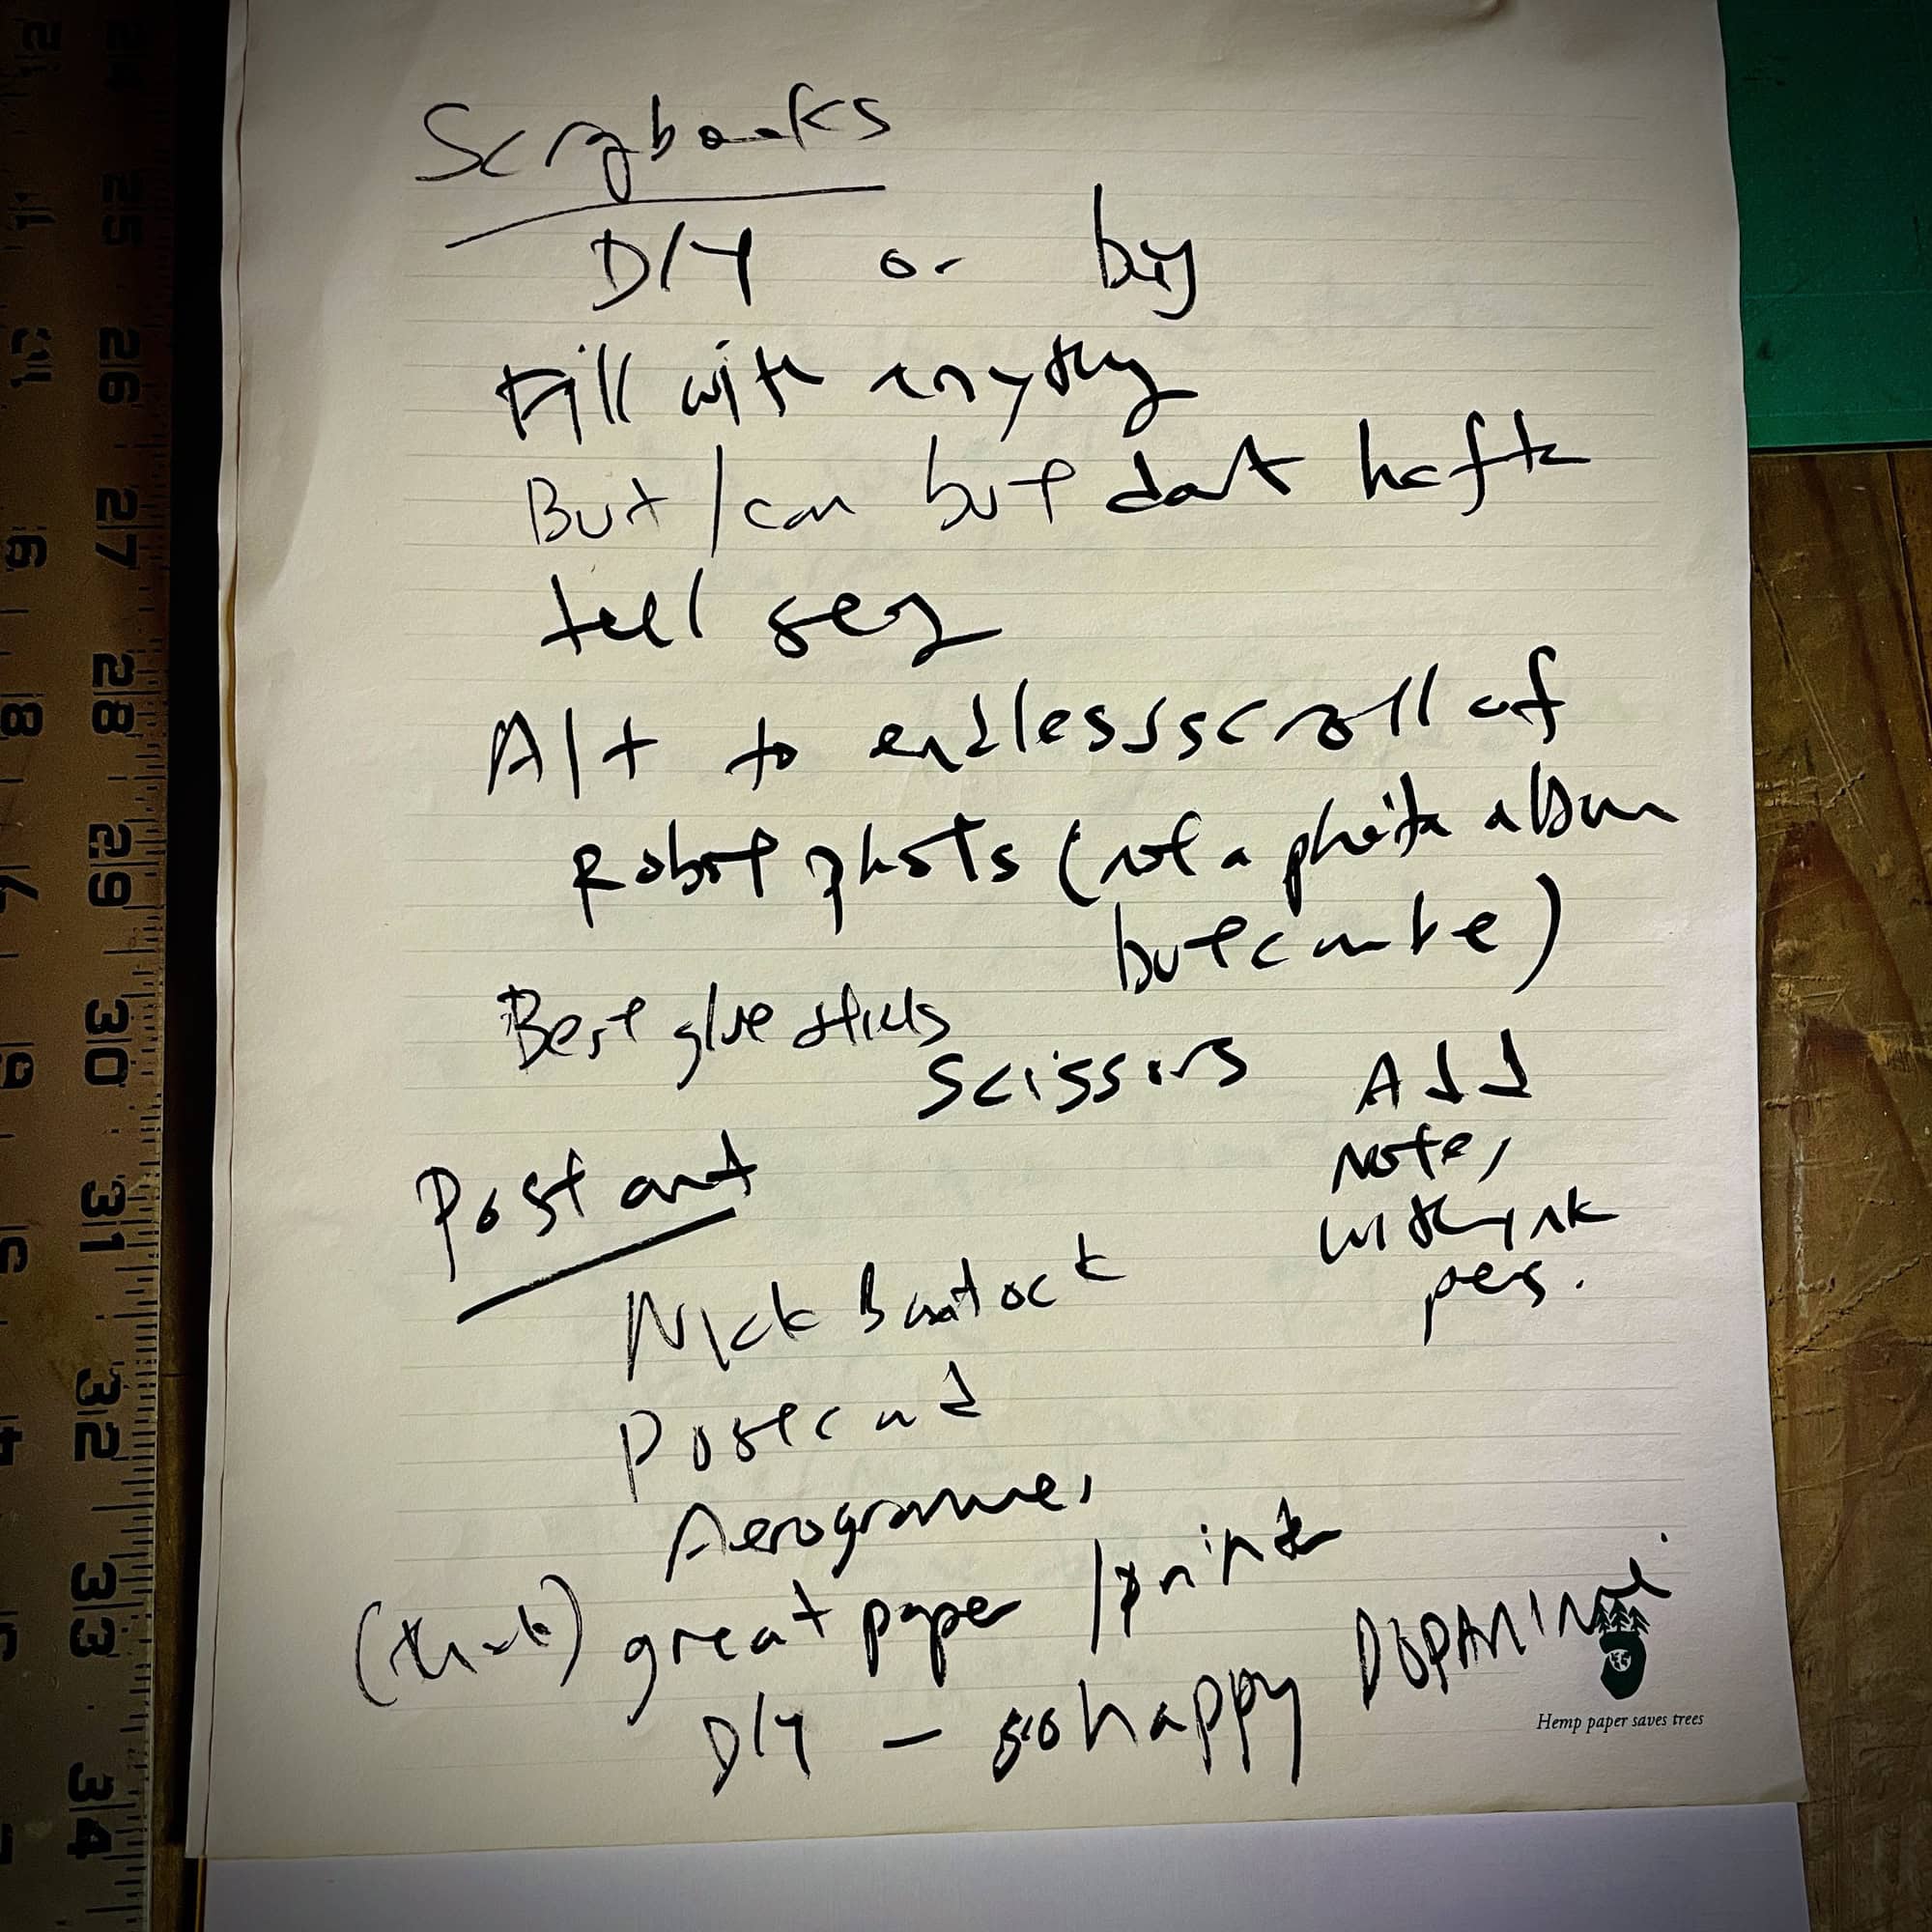 Scrapbooks
DIY or buy
Fill with anything
But / can but don't hafta
tell
Alt to endless scroll of
Robot photos (not a photo album
but can be)
Best glue sticks
Scissors
Add
notes
with ink
pens.
Post art
Nick Bantock
Postcard
Aerogrammes
great paper / printer
DIY – so happy DOPAMINE
Hemp paper saves trees
24
25
26
27
28
29
30
31
32
33
34
12
11
10
9
8
7
6
5
4